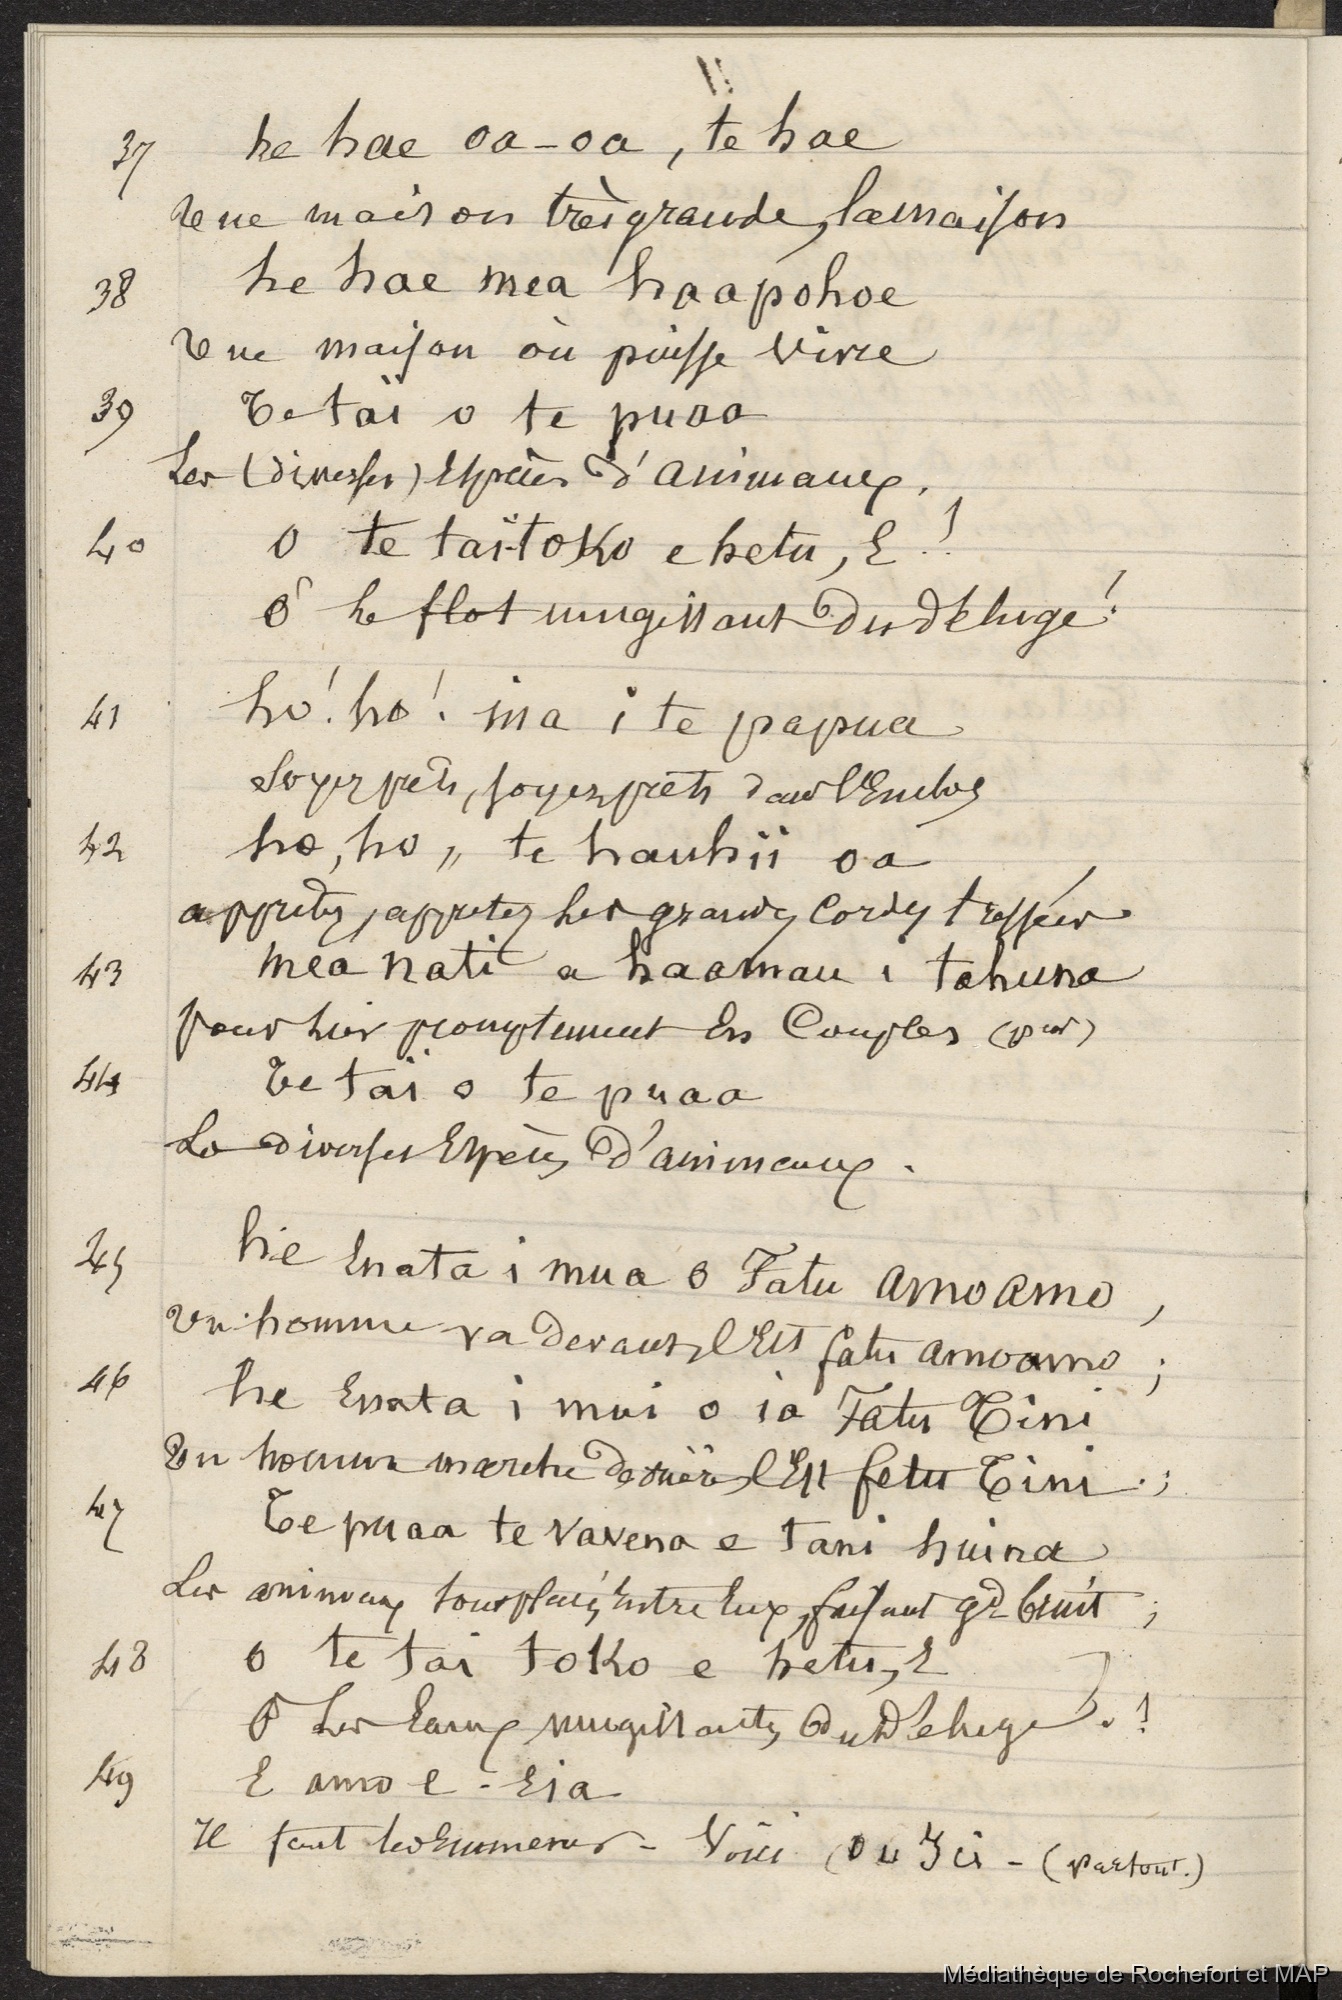 11
37 he hae oa-oa, te hae
Une maison très grande, la maison
38 he hae mea haapohoe
Une maison où puisse vivre
39 Te taï o te puaa
Les (diverses) Espèces d'animaux.
40 O te taï-toko e hetu, E!
Ô le flot mugissant du déluge!
41 ho! ho! ina i te papua
Soyez prêts, soyez prêts dans l'Enclos
42 ho, ho,, te hauhii oa
apprêtez, apprêtez les grandes Cordes tressées
43 mea nati a haamau i tahuna
pour lier promptement En Couples
44 Te taï o te puaa
Les diverses Espèces d'animaux.
45 he Enata i mua o Fatu Amoamo,
Un homme va devant, c'Est fatu amoamo;
46 he Enata i mui o ia Fatu Tini
Un homme marche derrière, c'Est fetu Tini.;
47 Te puaa te vavena e tani huina
Les animaux tous placés Entre Eux, faisant gd bruit;
48 o te tai toko e hetu, E
Ô Les Eaux mugissantes du Déluge.!
49 E amo e - Eia
Il faut les Emmener - Voici (ou Ici - (partout.)
Médiathèque de Rochefort et MAP